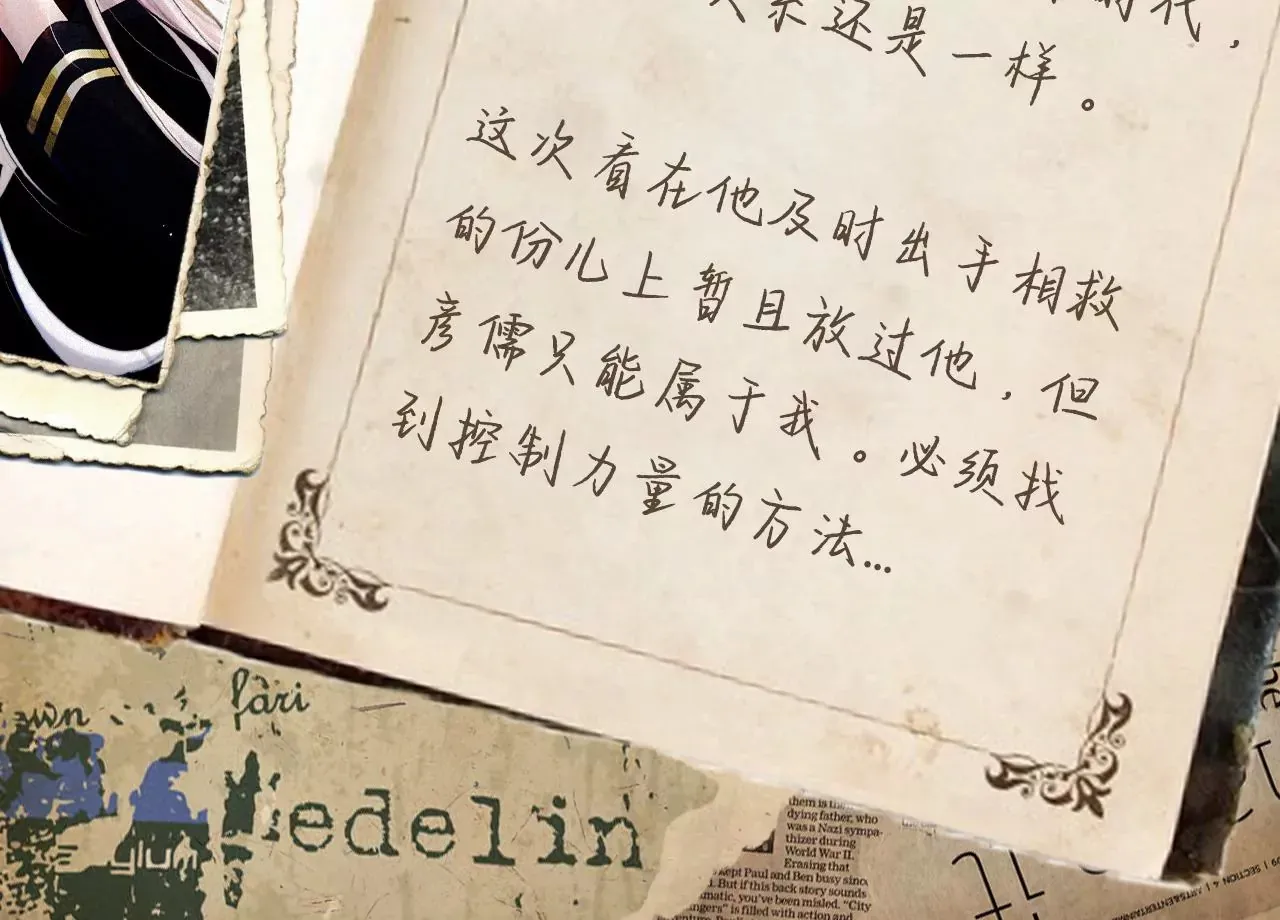 时代，
还是一样。
这次看在他及时出手相救
的份儿上暂且放过他，但
彦儒只能属于我。必须找
到控制力量的方法...
fâri
edelin
glum
dying father, who
was a Nazi sympa-
thizer during
World War II.
Erasing that
kept Paul and Ben busy since
. But if this back story sounds
matic, you've been misled. "City
ngers" is filled with action and
09 | SECTION 4 | ARTS&ENTERTAI